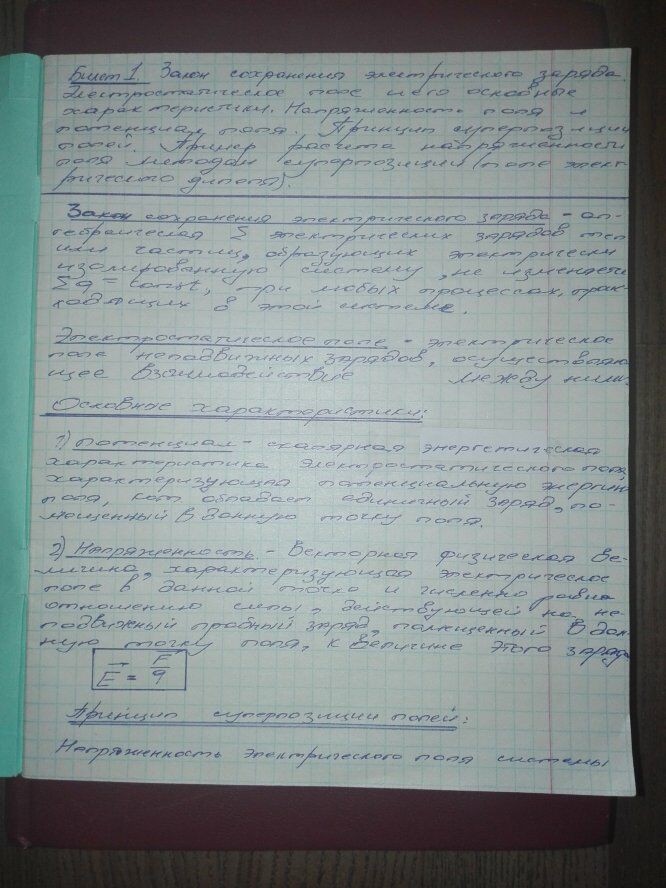 Билет 1. Закон сохранения электрического заряда.
Электростатическое поле и его основные
характеристики. Напряженность поля и
потенциал поля. Принцип суперпозиции
полей. Пример расчета напряженности
поля методом суперпозиции (поле элект-
рического диполя).
Закон сохранения электрического заряда - ал-
гебраическая Σ электрических зарядов тел
или частиц, образующих электрически
изолированную систему, не изменяется
Σq = const, при любых процессах, прои-
ходящих в этой системе.
Электростатическое поле - электрическое
поле неподвижных зарядов, осуществляю-
щее взаимодействие между ними.
Основные характеристики:
1) Потенциал - скалярная энергетическая
характеристика электростатического поля,
характеризующая потенциальную энергию
поля, кот обладает единичный заряд, по-
мещенный в данную точку поля.
2) Напряженность - векторная физическая ве-
личина, характеризующая электрическое
поле в данной точке и численно равна
отношению силы, действующей на не-
подвижный пробный заряд, помещенный в дан-
ную точку поля, к величине этого заряда
E = F/q
Принцип суперпозиции полей:
Напряженность электрического поля системы